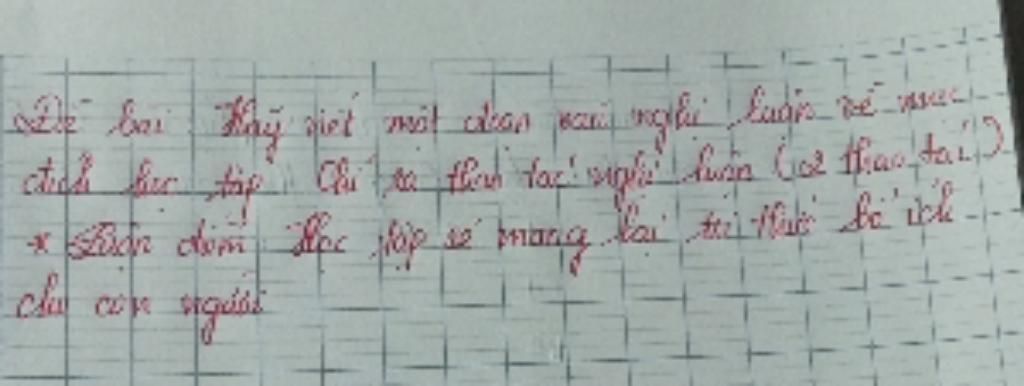 Đề bài: Hãy viết một đoạn văn nghị luận về mục
đích học tập. Chỉ ra thao tác nghị luận (2 thao tác)
* Luận điểm: Học tập sẽ mang lại tri thức bổ ích
cho con người